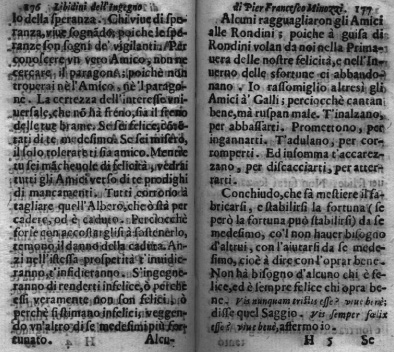 176 Libidini dell'Ingegno
lo della speranza. Chi viue di spe-
ranza, viue sognādo, poiche le spe-
ranze son sogni de' vigilanti. Per
conoscere vn vero Amico, non ne
cercare il paragone; poiche non
trouerai nè l'Amico, nè 'l parago-
ne. La certezza dell'interesse vni-
uersale, che nō hà freno, sia il freno
delle tue brame. Se sei felice, cōtē-
tati di te medesimo. Se sei misero,
il solo tolerarti sia amico. Mentre
tu sei màcheuole di felicità, vedrai
tutti gli Amici verso di te prodighi
di mancamenti. Tutti corrono à
tagliare quell'Albero, che ò stà per
cadere, od è caduto. Perciocchè
forse con accostarglisi à sostenerlo,
temono il danno della caduta. An-
zi nell'istessa prosperità t'inuidie-
ranno, t'insidieranno. S'ingegne-
ranno di renderti infelice, ò poichè
essi veramente non son felici, ò
perchè si stimano infelici, veggen-
do vn'altro di se medesimi più for-
tunato. Alcu-
di Pier Francesco Minozzi. 177
Alcuni ragguagliaron gli Amici
alle Rondini; poichè à guisa di
Rondini volan da noi nella Prima-
uera delle nostre felicità, e nell'In-
uerno delle sfortune ci abbando-
nano. Io rassomiglio altresì gli
Amici à' Galli; perciocchè cantan
bene, mà ruspan male. T'inalzano,
per abbassarti. Promettono, per
ingannarti. T'adulano, per cor-
romperti. Ed insomma t'accarez-
zano, per discacciarti, per atter-
rarti.
Conchiudo, che fà mestiere il fa-
bricarsi, e stabilirsi la fortuna (se
però la fortuna può stabilirsi) da se
medesimo, co'l non hauer bisogno
d'altrui, con l'aiutarsi da se mede-
simo, cioè à dire con l'oprar bene.
Non hà bisogno d'alcuno chi è fe-
lice, ed è sempre felice chi opra be-
ne. Vis nunquam tristis esse? viue benè;
disse quel Saggio. Vis semper fœlix
esse? viue benè, affermo io.
H 5 Se